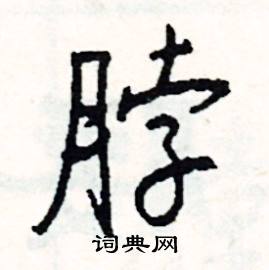 脖
词典网